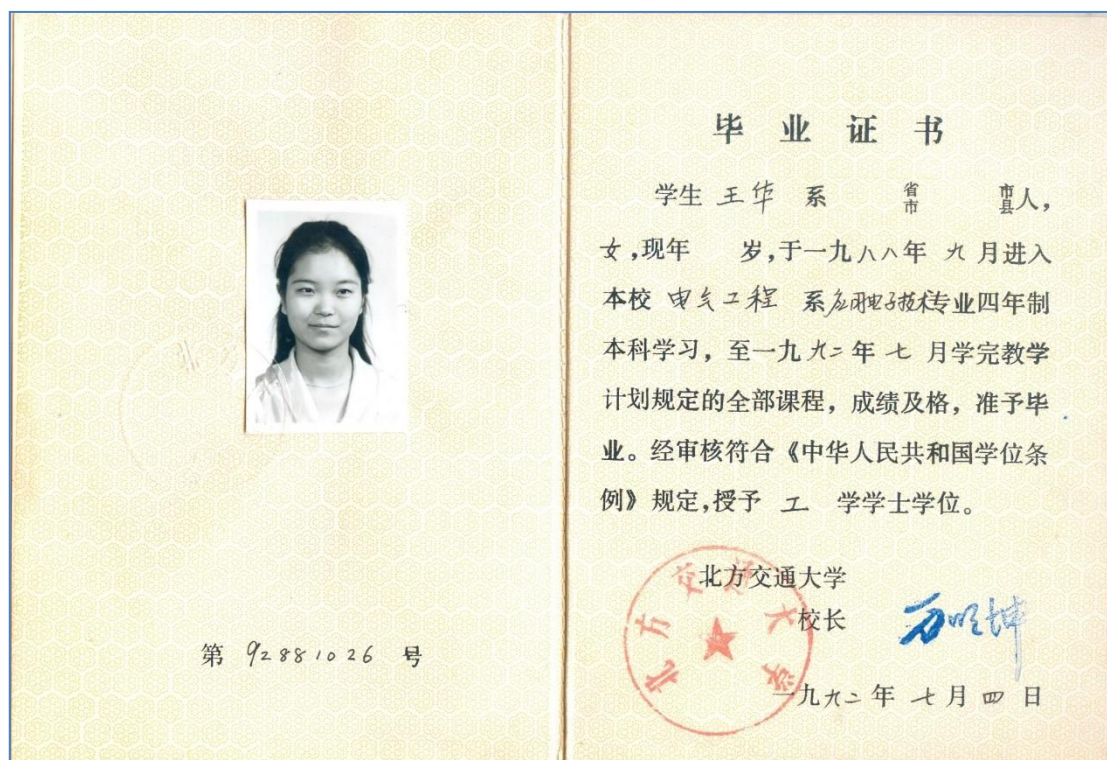 第 92881026 号
毕业证书
学生 王华 系 省市 市县人，
女，现年 岁，于一九八八年 九 月进入
本校 电气工程 系应用电子技术专业四年制
本科学习，至一九九二年 七 月学完教学
计划规定的全部课程，成绩及格，准予毕
业。经审核符合《中华人民共和国学位条
例》规定，授予 工 学学士学位。
北方交通大学
校长 万明坤
一九九二年 七 月 四 日
北方交通大学